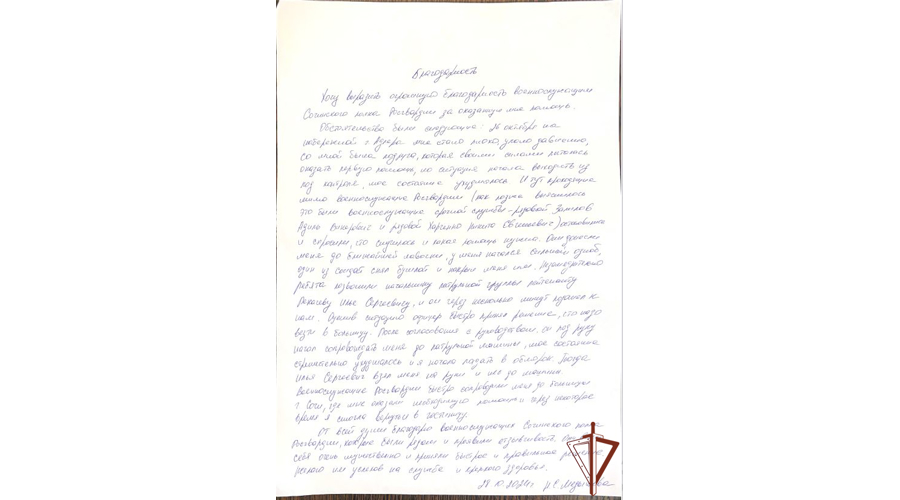 Благодарность
Хочу выразить огромную благодарность военнослужащим
Сочинского полка Росгвардии за оказанную мне помощь.
Обстоятельства были следующие: 26 октября на
набережной г. Адлера мне стало плохо, упало давление,
со мной была подруга, которая своими силами пыталась
оказать первую помощь, но ситуация начала выходить из
под контроля, мое состояние ухудшалось. И тут проходящие
мимо военнослужащие Росгвардии (как позже выяснилось
это были военнослужащие срочной службы - рядовой
и рядовой Никита Евгеньевич) остановились
и спросили, что случилось и какая помощь нужна. Они донесли
меня до ближайшей лавочки, у меня начался сильный озноб,
один из солдат снял бушлат и накрыл меня им.
ребята позвонили начальнику патрульной группы лейтенанту
Илье Сергеевичу, и он через несколько минут прибыл к
нам. Оценив ситуацию офицер быстро принял решение, что надо
везти в больницу. После согласования с руководством, он под руку
начал сопровождать меня до патрульной машины, мое состояние
стремительно ухудшалось и я начала падать в обморок. Тогда
Илья Сергеевич взял меня на руки и нес до машины.
Военнослужащие Росгвардии быстро сопроводили меня до больницы
г. Сочи, где мне оказали необходимую помощь и через некоторое
время я смогла вернуться в гостиницу.
От всей души благодарю военнослужащих Сочинского полка
Росгвардии, которые были рядом и проявили отзывчивость.
себя очень мужественно и приняли быстрое и правильное решение.
Желаю им успехов на службе и крепкого здоровья.
28.10.2024г.